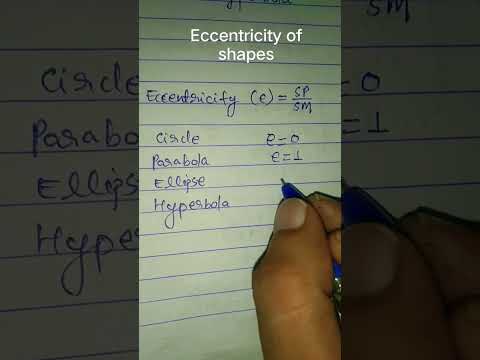 Eccentricity of
shapes
Eccentricity (e) = SP/SM
Circle e=0
Parabola e=1
Ellipse
Hyperbola